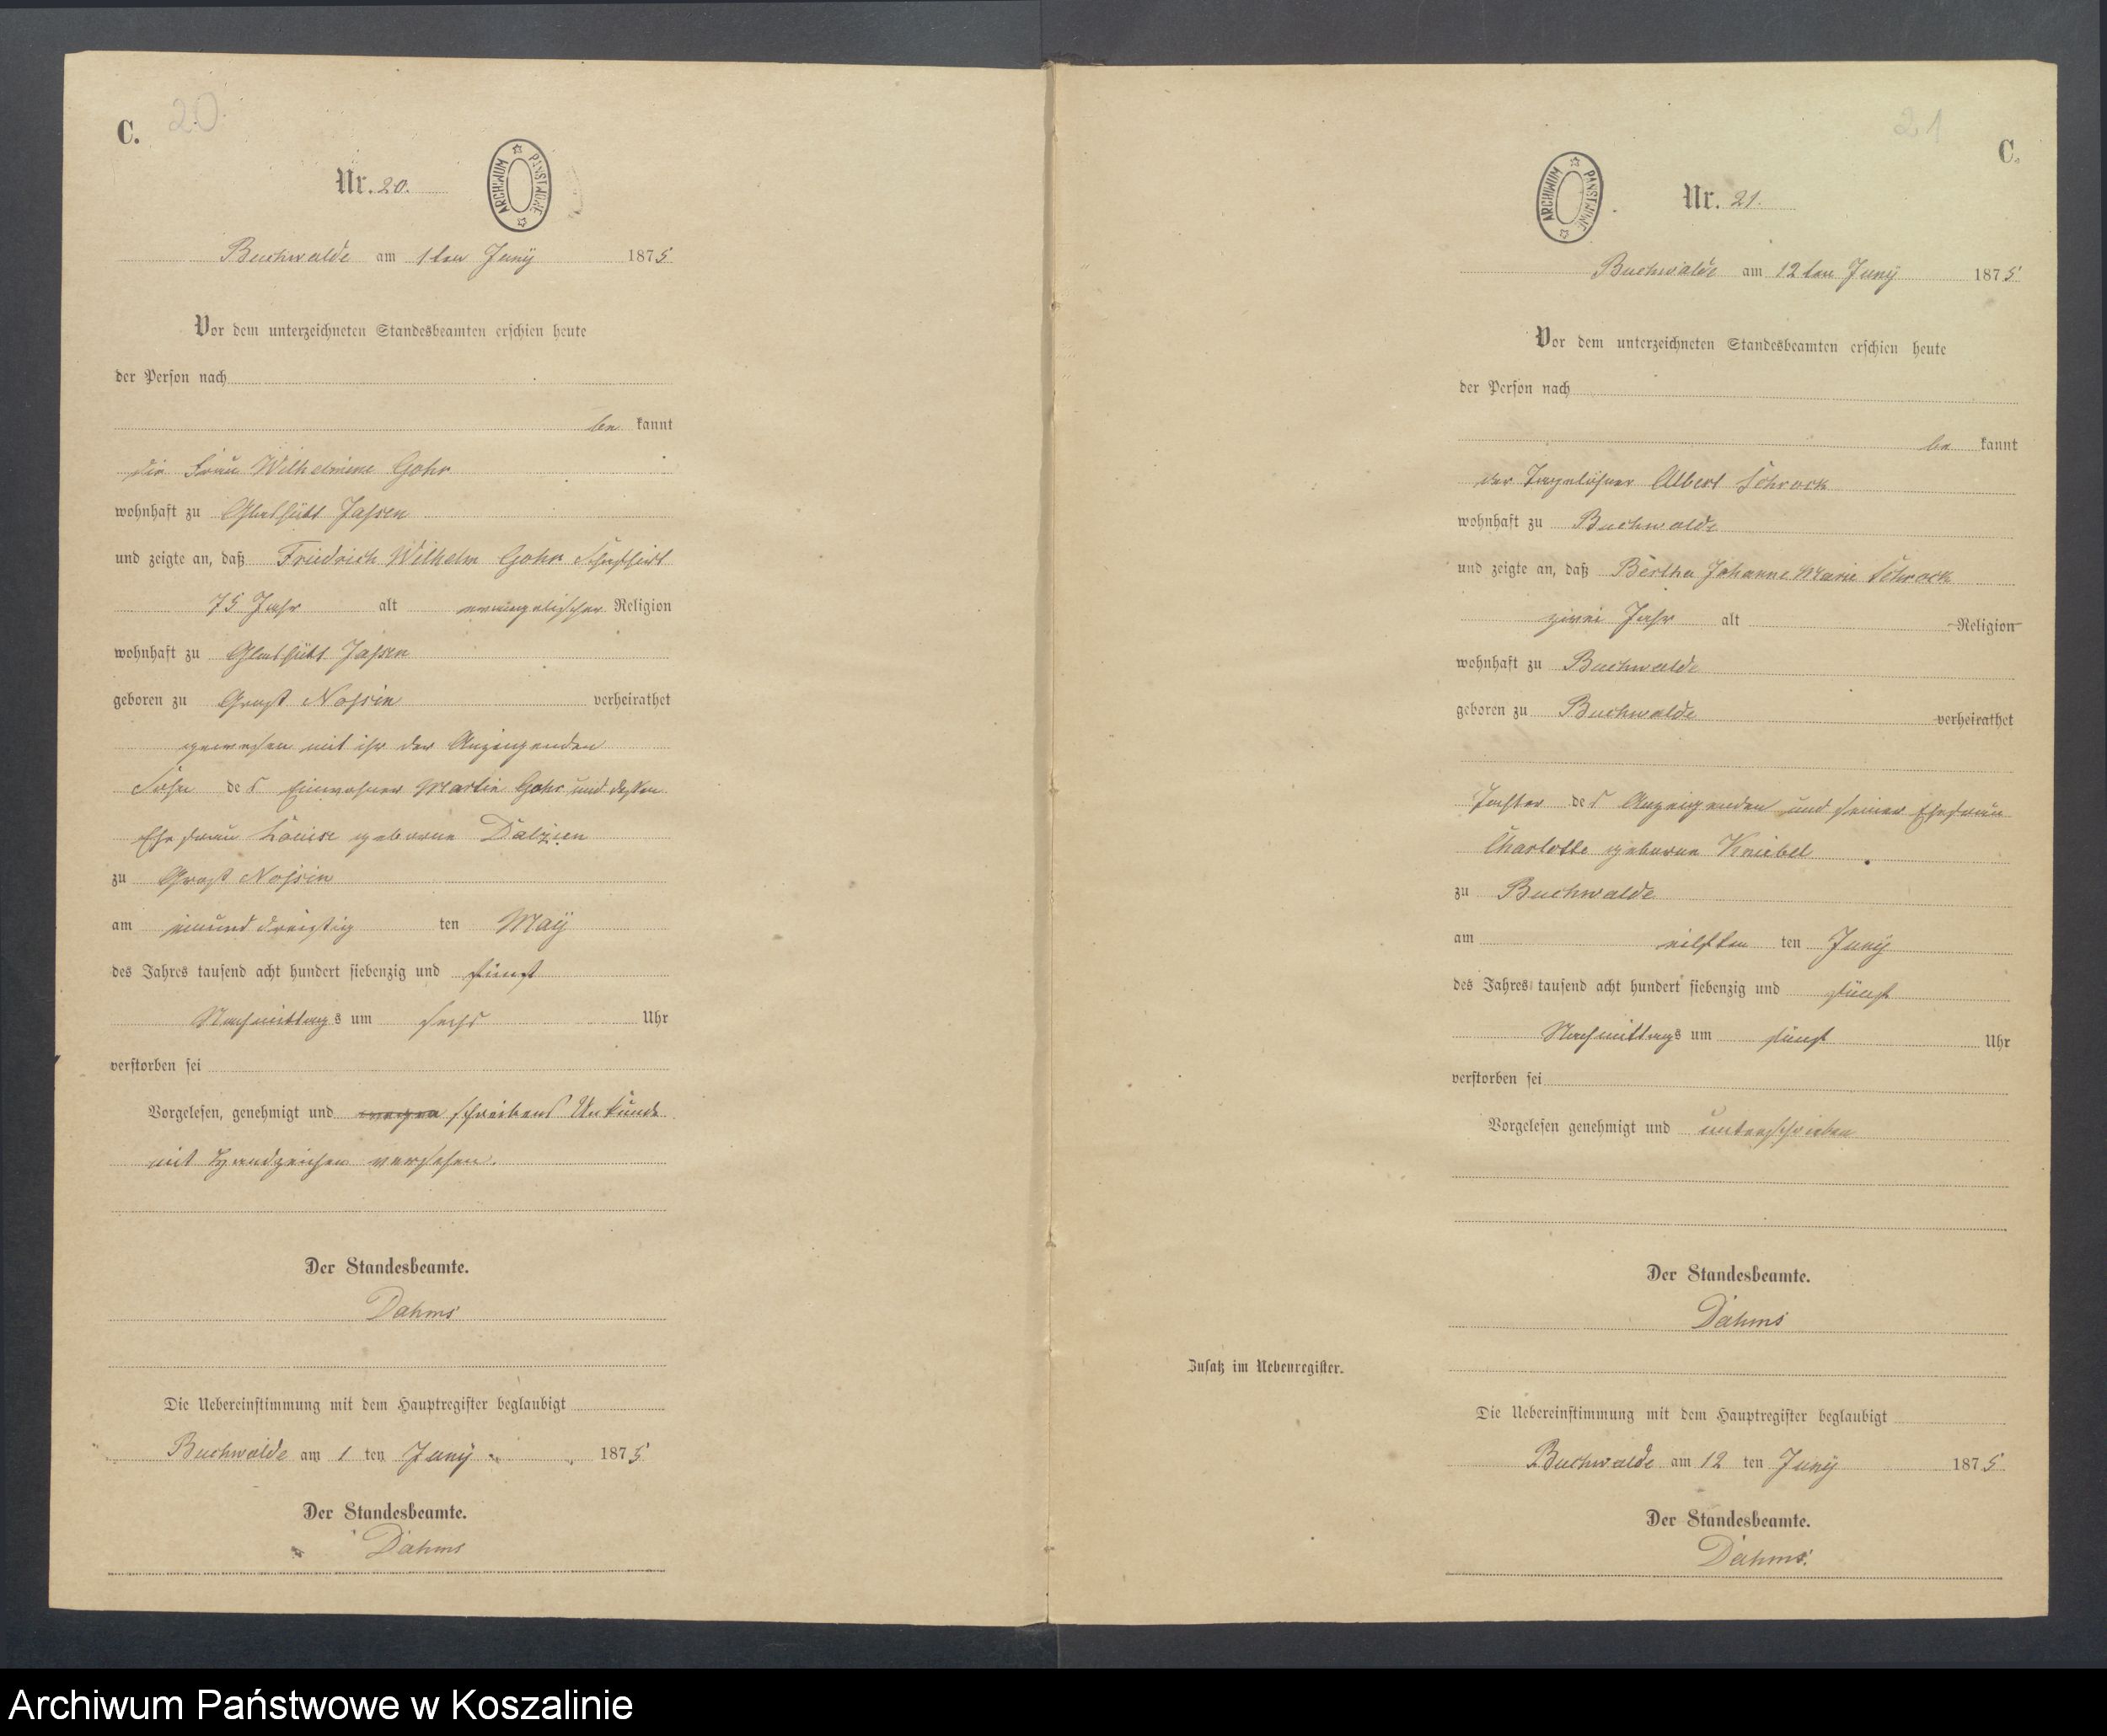 C. 20.
Nr. 20.
ARCHIWUM PAŃSTWOWE
Buchwalde am 1ten Juny 1875
Vor dem unterzeichneten Standesbeamten erschien heute
der Person nach
be kannt
die Frau Wilhelmine Gohr
wohnhaft zu Glashütt Jassen
und zeigte an, daß Friedrich Wilhelm Gohr
75 Jahr alt evangelischer Religion
wohnhaft zu Glashütt Jassen
geboren zu Groß Nossin verheirathet
gewesen mit ihr der Anzeigenden
Sohn des Einwohner Martin Gohr und dessen
Ehefrau Louise geborne Dalzien
zu Groß Nossin
am einund dreißig ten Maÿ
des Jahres tausend acht hundert siebenzig und fünf
Nachmittags um sechs Uhr
verstorben sei
Vorgelesen, genehmigt und wegen schreibens Unkunde
mit Handzeichen versehen.
Der Standesbeamte.
Dahms
Die Uebereinstimmung mit dem Hauptregister beglaubigt
Buchwalde am 1 ten Juny 1875
Der Standesbeamte.
Dahms
21
C.
ARCHIWUM PAŃSTWOWE
Nr. 21.
Buchwalde am 12ten Juny 1875
Vor dem unterzeichneten Standesbeamten erschien heute
der Person nach
be kannt
der Tagelöhner Albert Schrock
wohnhaft zu Buchwalde
und zeigte an, daß Bertha Johanne Marie Schrock
zwei Jahr alt Religion
wohnhaft zu Buchwalde
geboren zu Buchwalde verheirathet
Tochter des Anzeigenden und seiner Ehefrau
Charlotte geborne Kniebel
zu Buchwalde
am eilften ten Juny
des Jahres tausend acht hundert siebenzig und fünf
Nachmittags um fünf Uhr
verstorben sei
Vorgelesen genehmigt und unterschrieben
Der Standesbeamte.
Dahms
Zusatz im Nebenregister.
Die Uebereinstimmung mit dem Hauptregister beglaubigt
Buchwalde am 12 ten Juny 1875
Der Standesbeamte.
Dahms.
Archiwum Państwowe w Koszalinie